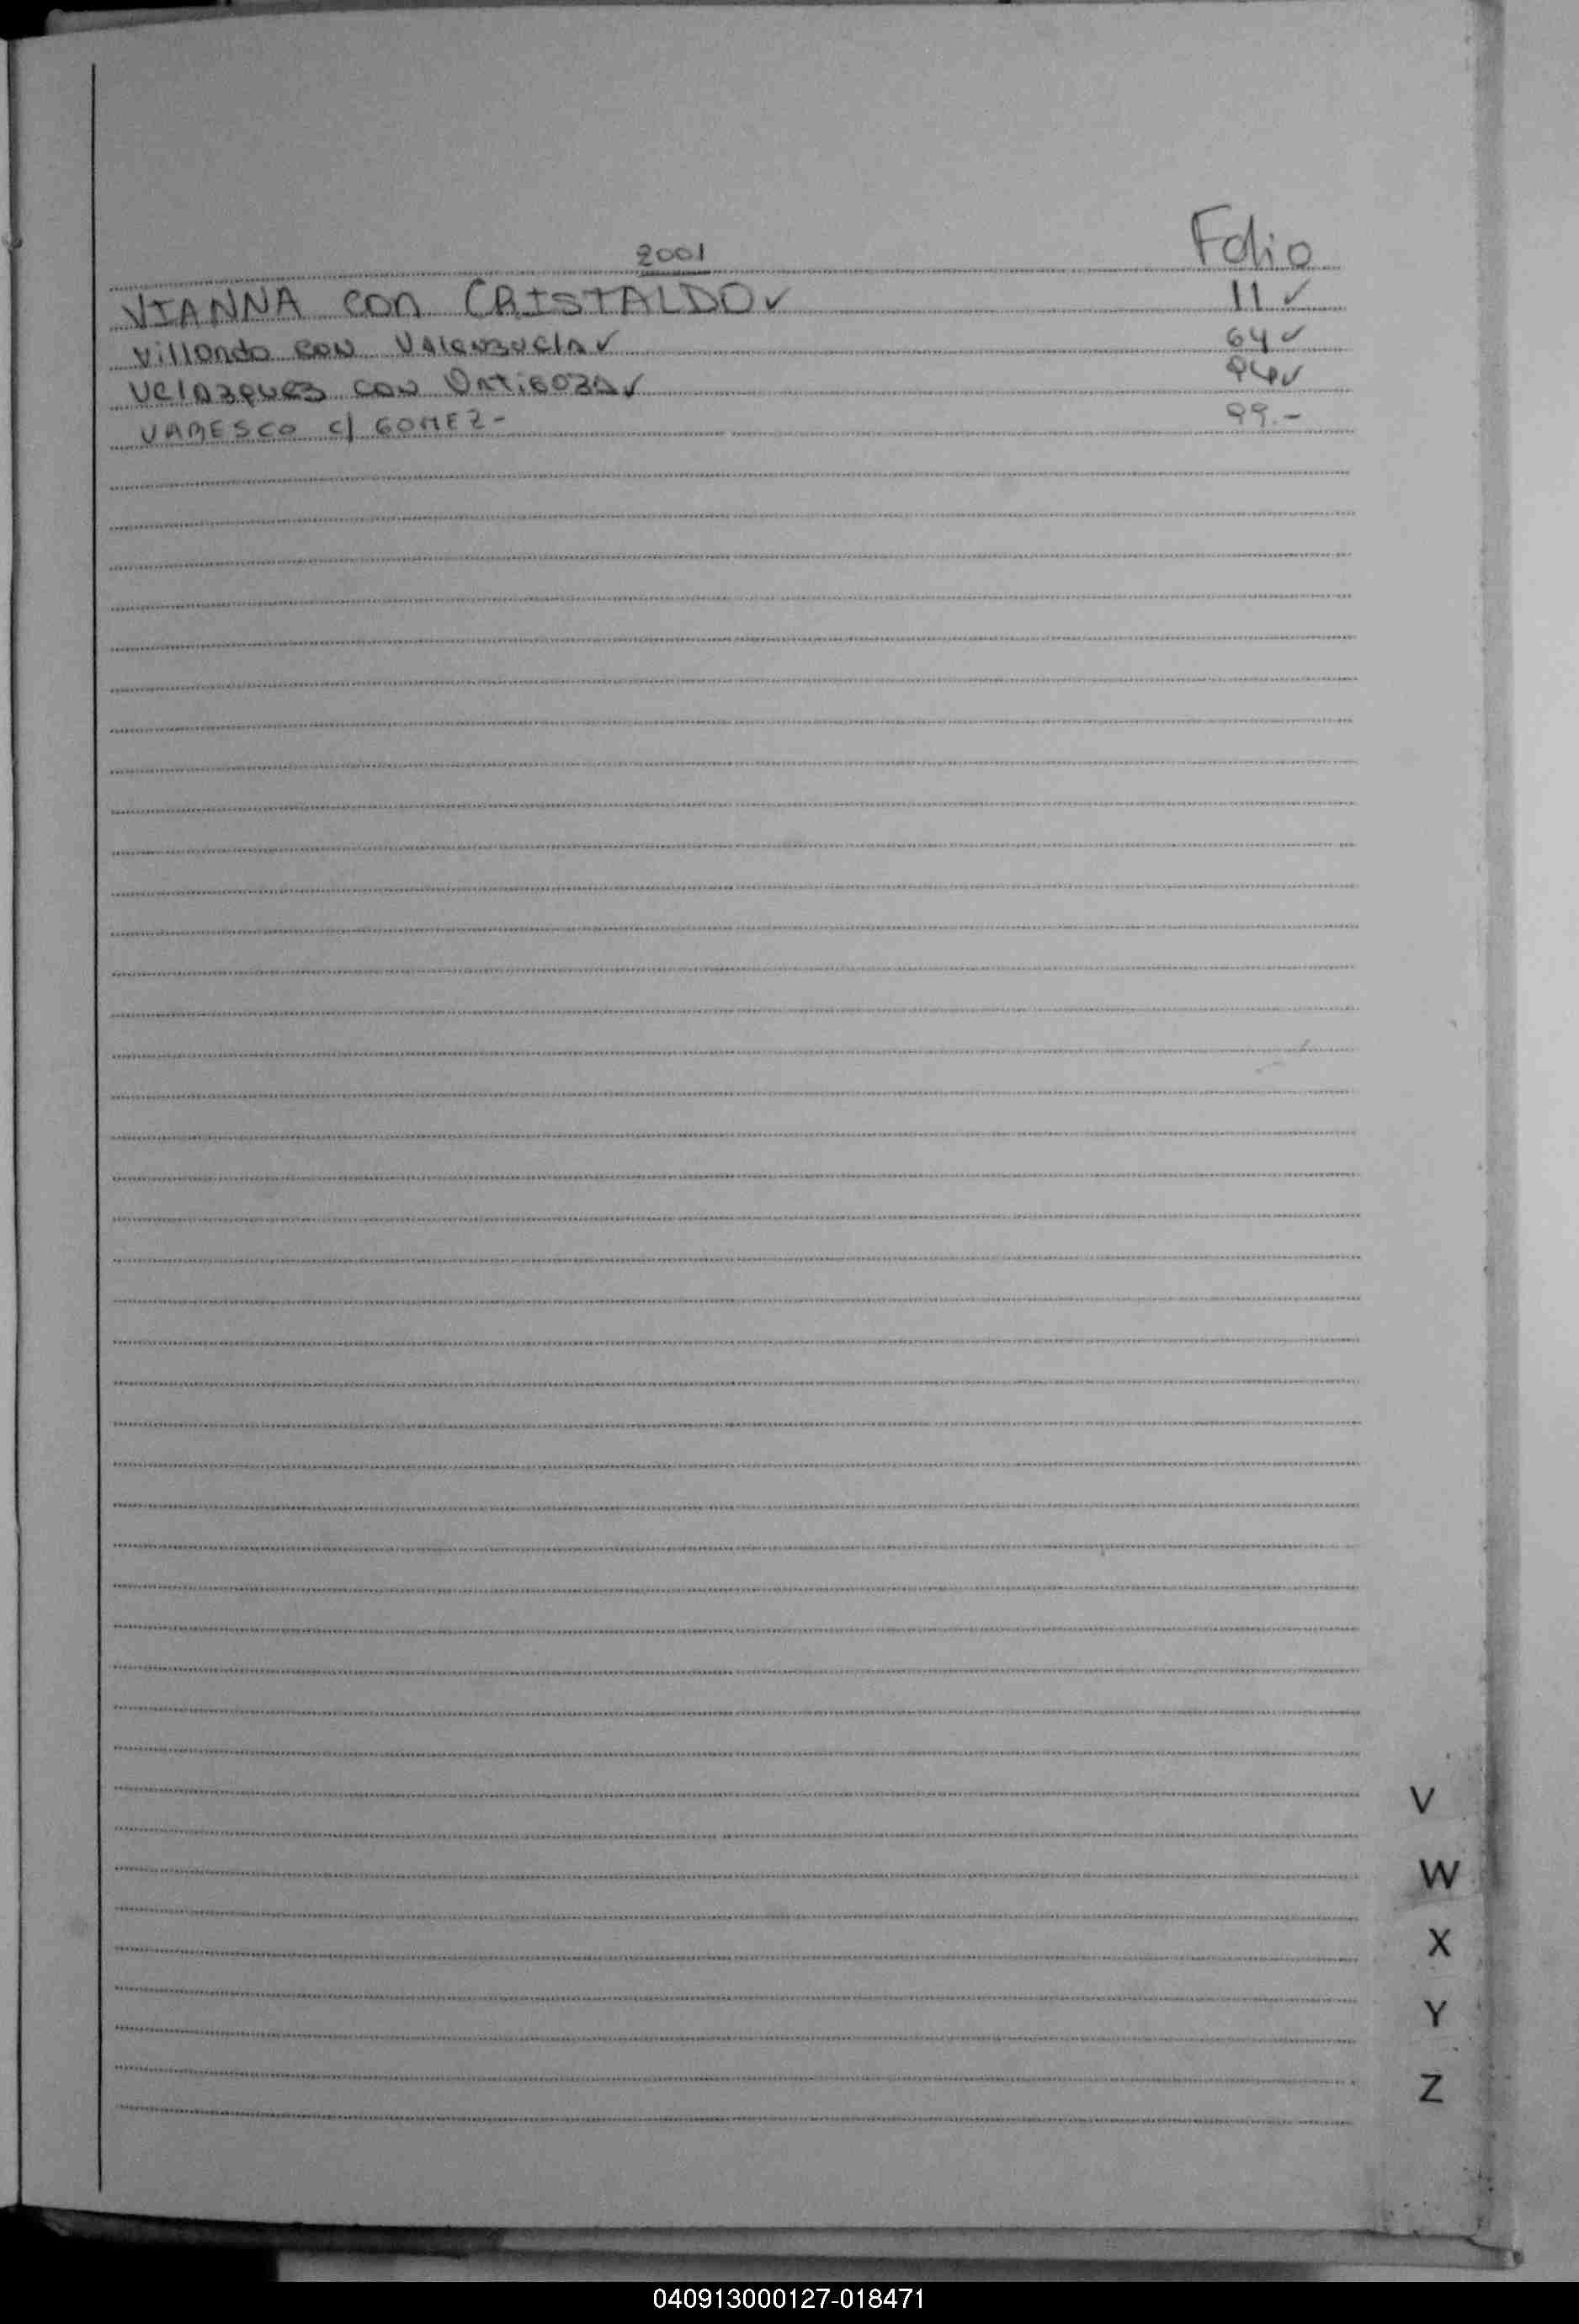 2001 Folio
VIANNA con CRISTALDO ✓ 11 ✓
Villondo con Valenzuela ✓ 64 ✓
Velazquez con Ortigoza ✓ ✓
VARESCO c/ GOMEZ - 99.-
V
W
X
Y
Z
040913000127-018471